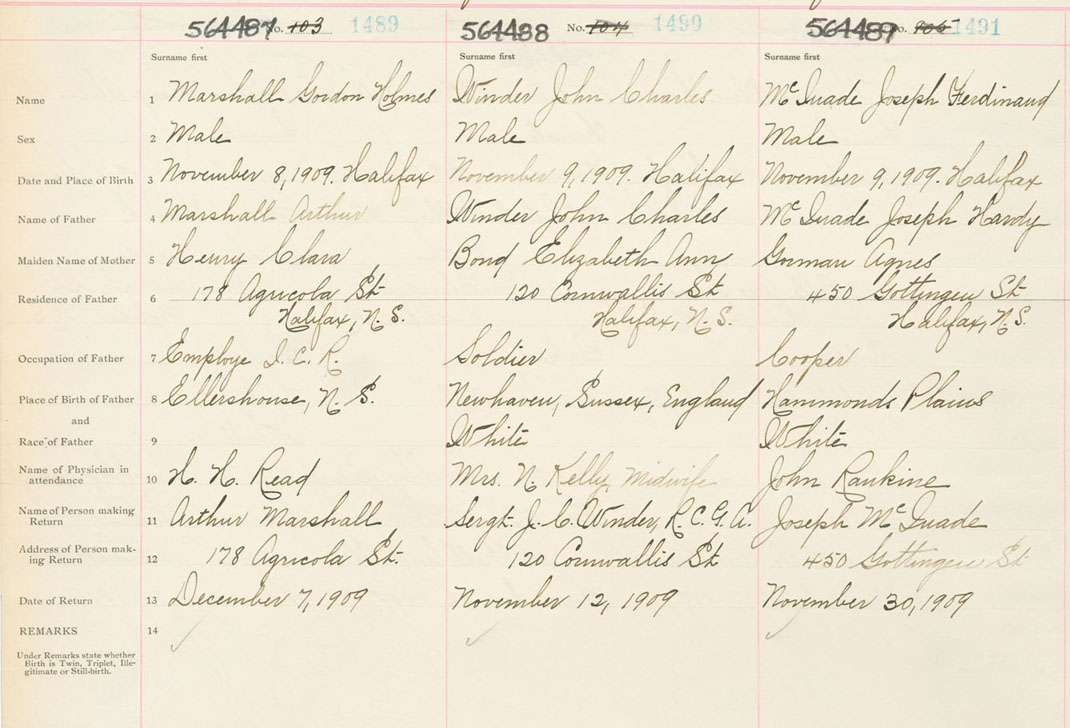 564487 No. 103 1489 564488 No. 104 1490 564489 No. 105 1491
Surname first Surname first Surname first
Name 1 Marshall Gordon Holmes Winder John Charles McQuade Joseph Ferdinand
Sex 2 Male Male Male
Date and Place of Birth 3 November 8, 1909. Halifax November 9, 1909. Halifax November 9, 1909. Halifax
Name of Father 4 Marshall Arthur Winder John Charles McQuade Joseph Hardy
Maiden Name of Mother 5 Henry Clara Bond Elizabeth Ann Gorman Agnes
Residence of Father 6 178 Agricola St 120 Cornwallis St 450 Gottingen St
Halifax, N.S. Halifax, N.S. Halifax, N.S.
Occupation of Father 7 Employe I.C.R. Soldier Cooper
Place of Birth of Father 8 Ellershouse, N.S. Newhaven, Sussex, England Hammonds Plains
and
Race of Father 9 White White
Name of Physician in
attendance 10 H. H. Read Mrs. N. Kelly, Midwife John Rankine
Name of Person making
Return 11 Arthur Marshall Sergt. J. C. Winder, R.C.G.A. Joseph McQuade
Address of Person mak-
ing Return 12 178 Agricola St. 120 Cornwallis St 450 Gottingen St
Date of Return 13 December 7, 1909 November 12, 1909 November 30, 1909
REMARKS 14
Under Remarks state whether
Birth is Twin, Triplet, Ille-
gitimate or Still-birth.